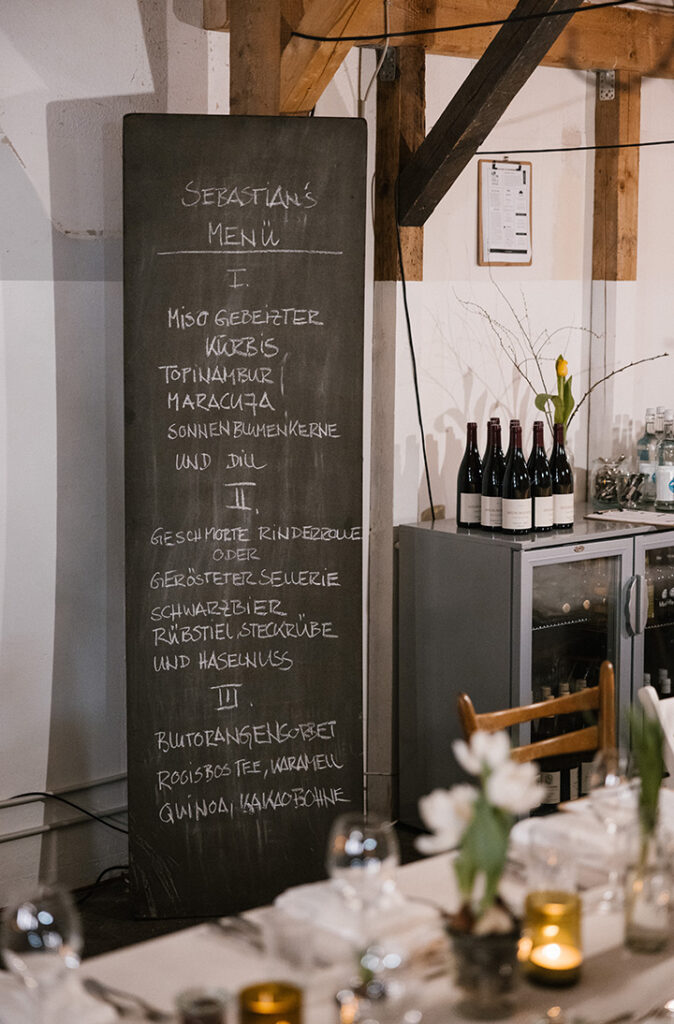 SEBASTIAN'S
MENÜ
I.
MISO GEBEIZTER
KÜRBIS
TOPINAMBUR,
MARACUJA
SONNENBLUMENKERNE
UND DILL
II.
GESCHMORTE RINDERROLLE
ODER
GERÖSTETER SELLERIE
SCHWARZBIER
RÜBSTIEL, STECKRÜBE
UND HASELNUSS
III.
BLUTORANGENSORBET
ROOIBOS TEE, KARAMELL
QUINOA, KAKAOBOHNE